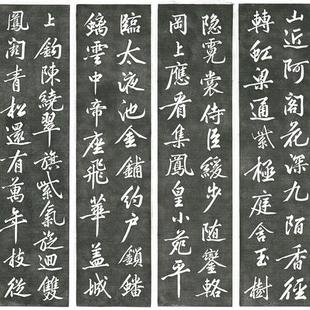 山近阿閣花深九陌香徑
轉虹梁通紫極庭含玉樹
隐霓裳侍臣緩步随鑾輅
岡上應看集鳳皇小苑平
臨太液池金鋪約户鎖蟠
螭雲中帝座飛華盖城
上鈎陳繞翠旗紫氣旋迴雙
鳳闕青松還有萬年枝從